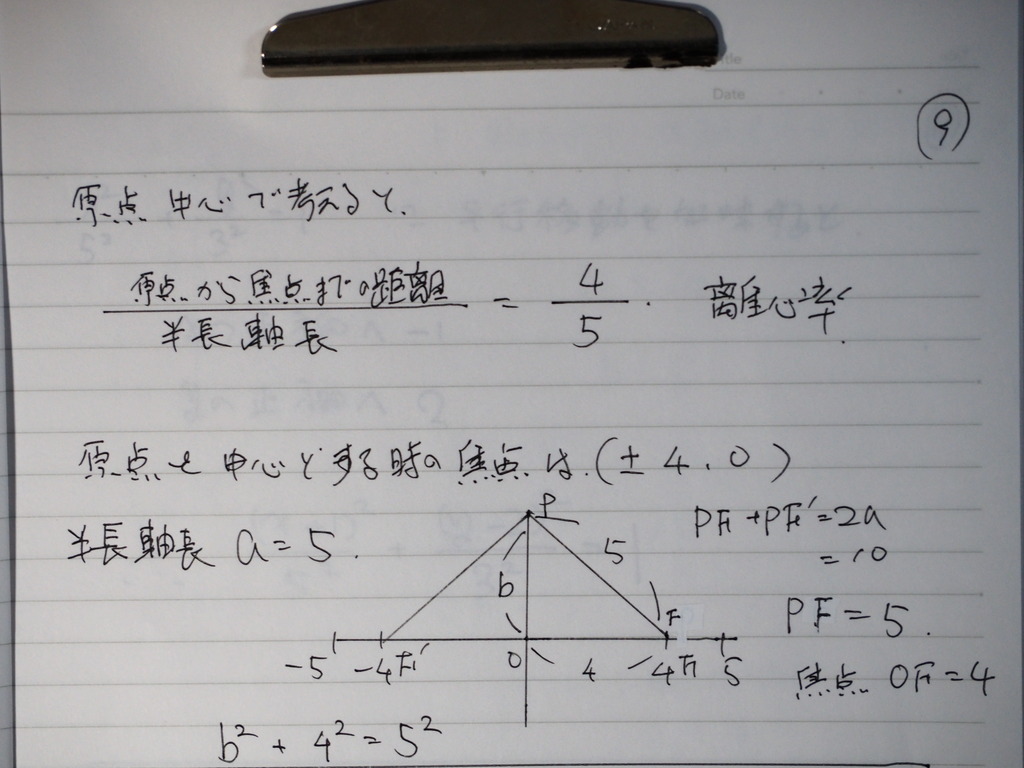 Title
Date
⑨
原点中心で考えると、
原点から焦点までの距離 / 半長軸長 = 4/5 . 離心率.
原点を中心とする時の焦点は、(±4, 0)
半長軸長 a = 5.
P
PF + PF' = 2a
= 10
5
b
PF = 5.
F
-5 -4 F' 0 4 4 F 5
焦点 OF = 4
b² + 4² = 5²